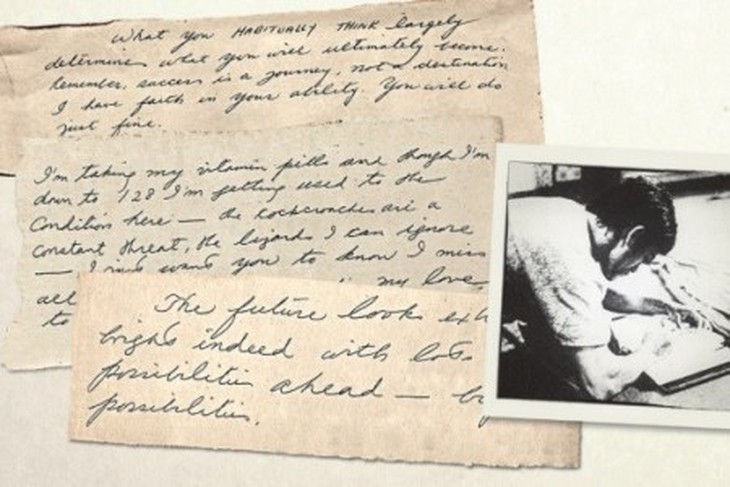 What you HABITUALLY THINK largely
determines what you will ultimately become.
Remember, success is a journey, not a destination
I have faith in your ability. You will do
just fine.
I'm taking my vitamin pills and though I'm
down to 128 I'm getting used to the
Condition here — the cockcroaches are a
constant threat, the lizards I can ignore
— I want you to know I miss
my love
all
to
The future looks
bright indeed with lots
possibilities ahead — b
possibilities.